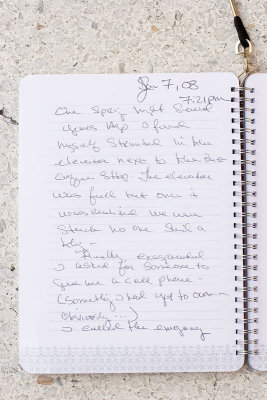 Jan 7, 08
7:21pm
One Spring night several
years ago I found
myself Stranded in the
elevator next to the
coffee Shop. The elevator
was full but once it
was realized we were
Stuck no one said a
thing –
Finally, exasperated
I asked for someone to
give me a cell phone –
(something I had yet to own –
obviously ...)
I called the emergency